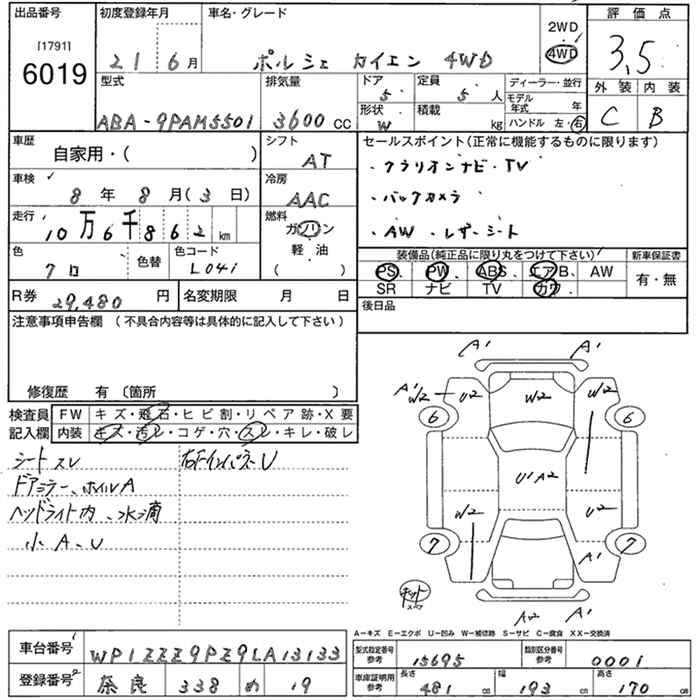 出品番号
[1791]
6019
初度登録年月
21 6月
車名・グレード
ポルシェ カイエン 4WD
2WD
4WD
評価点
3,5
型式
ABA-9PAM5501
排気量
3600 CC
ドア
5
定員
5 人
形状
W
積載
kg
ディーラー・並行
モデル年式 年
ハンドル 左・右
外装 内装
C B
車歴
自家用・( )
シフト
AT
車検
8年 8月(3日)
冷房
AAC
走行
10万6千862 km
燃料
ガソリン
軽油
( )
色
クロ
色替
色コード
L041
R券 29,480 円
名変期限 月 日
セールスポイント(正常に機能するものに限ります)
・クラリオンナビ・TV
・バックカメラ
・AW・レザーシート
装備品(純正品に限り丸をつけて下さい)
PS、PW、ABS、エアB、AW
SR ナビ TV カワ、
新車保証書
有・無
後日品
注意事項申告欄(不具合内容等は具体的に記入して下さい)
修復歴 有〔箇所 〕
検査員記入欄
FW キズ・飛石・ヒビ割・リペア跡・X要
内装 キズ・汚レ・コゲ・穴・スレ・キレ・破レ
シートスレ
ドアミラー、ホイルA
ヘッドライト内、水滴
小A、U
右Fインパネ U
A1 A1
A1
W2 U2 W2
6 6
W2
U1A2
W2 U2
7 7
A1
キット
A2 A1
A-キズ E-エクボ U-凹み W-補修跡 S-サビ C-腐食 XX-交換済
車台番号 WP1ZZZ9PZ9LA13133
登録番号 奈良 338 め 19
型式指定番号
参考
15695
類別区分番号
参考
0001
車庫証明用
参考
長さ 481 cm
幅 193 cm
高さ 170 cm